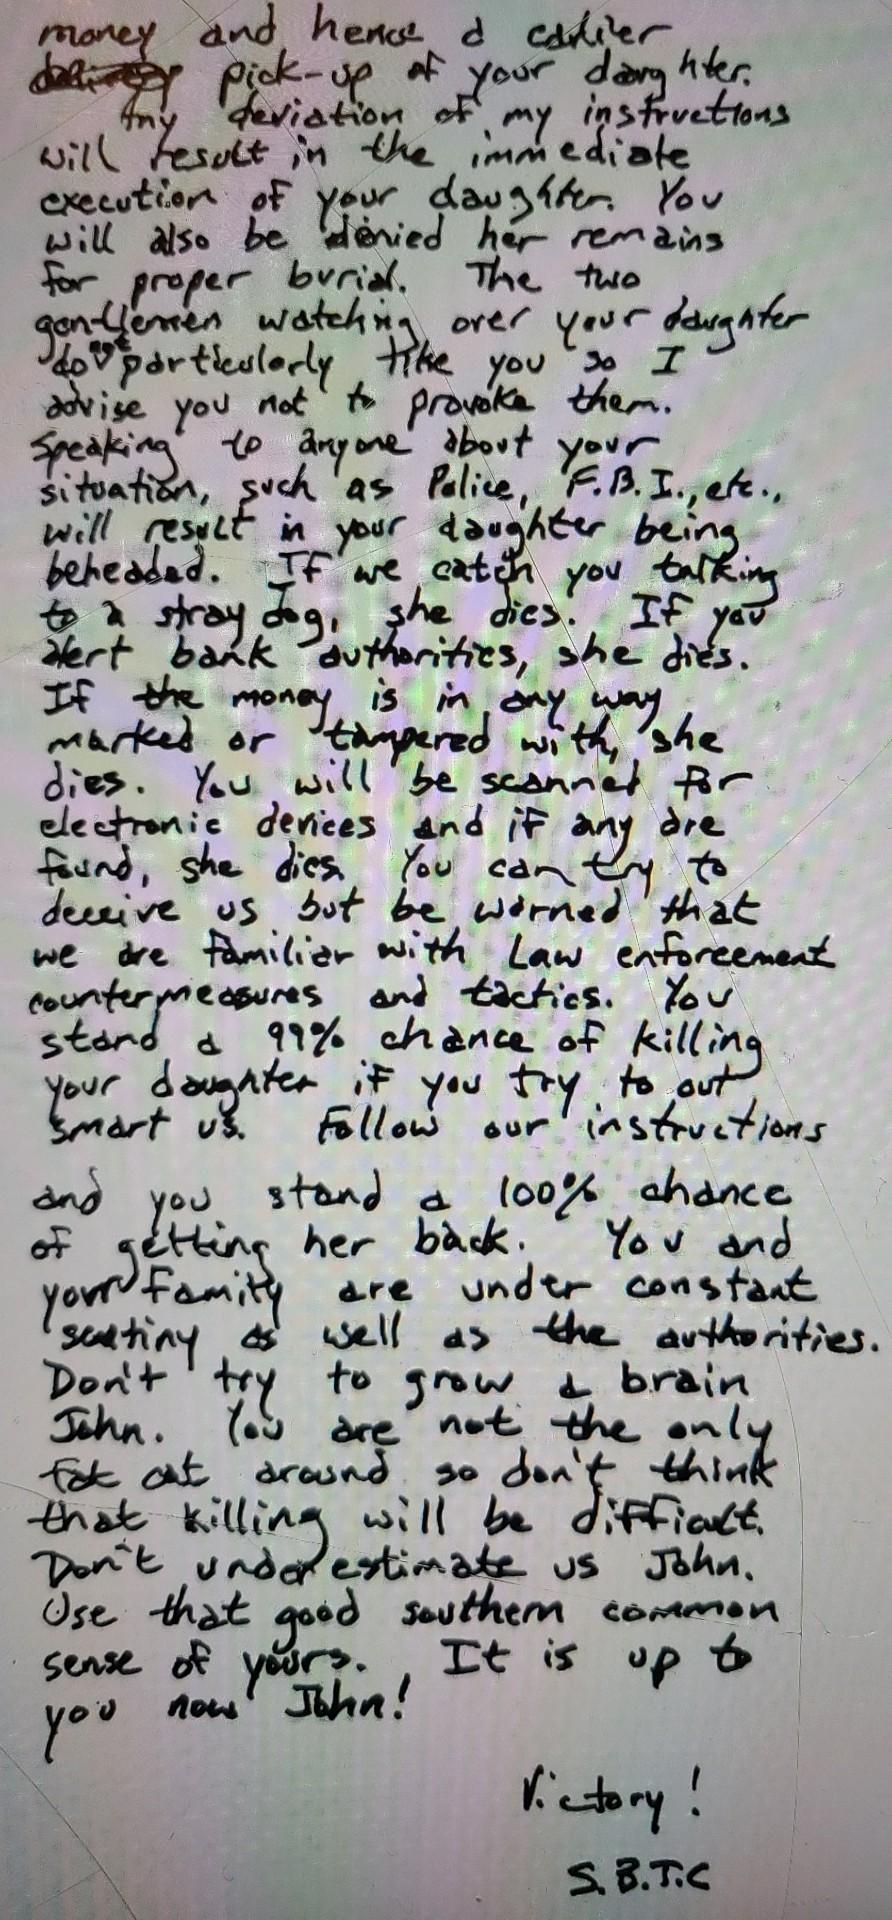 money and hence a earlier
delivery pick-up of your daughter.
Any deviation of my instructions
will result in the immediate
execution of your daughter. You
will also be denied her remains
for proper burial. The two
gentlemen watching over your daughter
do not particularly like you so I
advise you not to provoke them.
Speaking to anyone about your
situation, such as Police, F.B.I., etc.,
will result in your daughter being
beheaded. If we catch you talking
to a stray dog, she dies. If you
alert bank authorities, she dies.
If the money is in any way
marked or tampered with, she
dies. You will be scanned for
electronic devices and if any are
found, she dies. You can try to
deceive us but be warned that
we are familiar with Law enforcement
countermeasures and tactics. You
stand a 99% chance of killing
your daughter if you try to out
smart us. Follow our instructions
and you stand a 100% chance
of getting her back. You and
your family are under constant
scutiny as well as the authorities.
Don't try to grow a brain
John. You are not the only
fat cat around so don't think
that killing will be difficult.
Don't underestimate us John.
Use that good southern common
sense of yours. It is up to
you now John!
Victory!
S.B.T.C